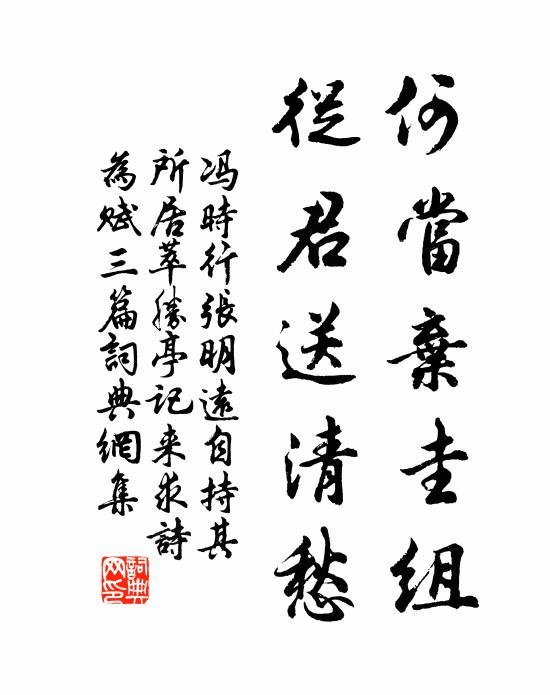 何當棄圭組
從君送清愁
冯時行張明遠自持其
所居萃勝亭記来求詩
為赋三篇詞典網集
詞典网印